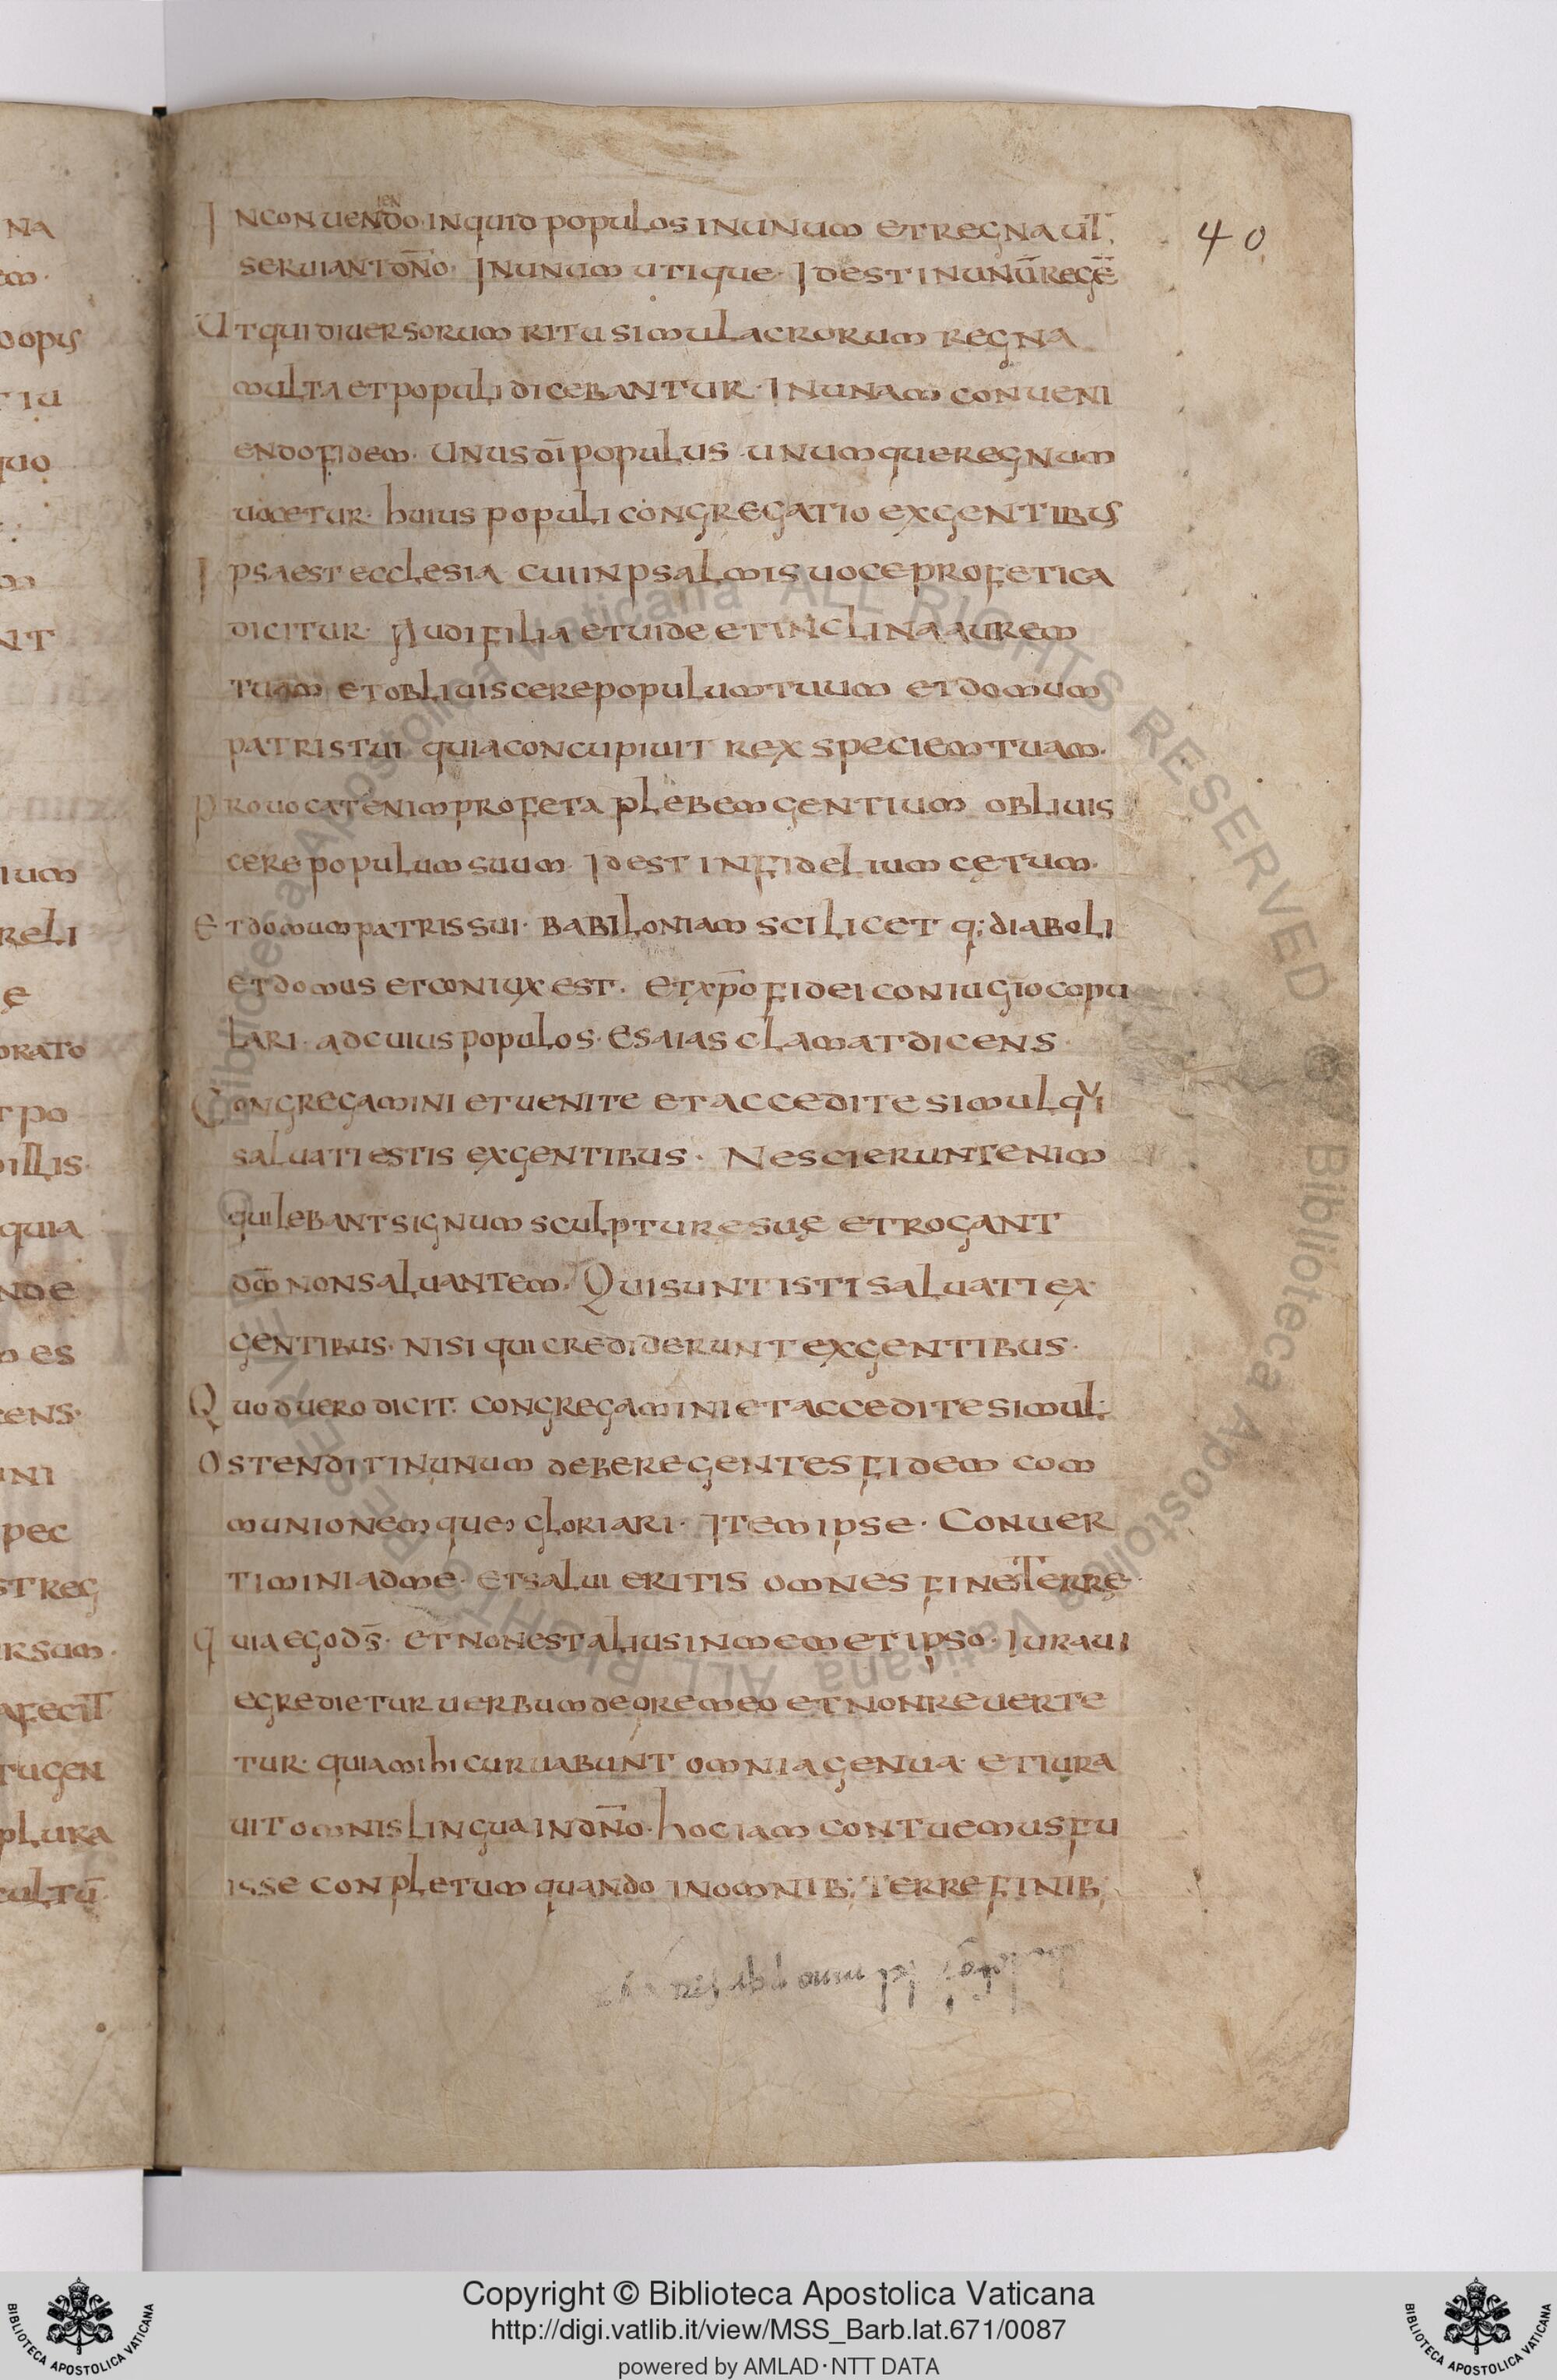 40
In conuenIENdo inquid populos in unum et regna ut
seruiant dn̄o · In unum utique · Id est in unū regē
Ut qui diuersorum ritu simulacrorum regna
multa et populi dicebantur · In unam conueni
endo fidem · unus dī populus unumque regnum
uocetur · huius populi congregatio ex gentibus
Ipsa est ecclesia cui in psalmis uoce profetica
dicitur · Audi filia et uide et inclina aurem
tuam et obliuiscere populum tuum et domum
patris tui quia concupiuit rex speciem tuam ·
Prouocat enim profeta plebem gentium obliuis
cere populum suum · Id est infidelium cętum ·
Et domum patris sui · babiloniam scilicet q; diaboli
et domus et coniux est · et xp̄o fidei coniugio copu
lari · ad cuius populos · esaias clamat dicens ·
Congregamini et uenite et accedite simul qui
saluati estis ex gentibus · Nescierunt enim
qui lebant signum sculpture suę et rogant
dm̄ non saluantem · Qui sunt isti saluati ex
gentibus · nisi qui crediderunt ex gentibus ·
Quod uero dicit · congregamini et accedite simul ·
Ostendit in unum debere gentes fidem com
munionemque gloriari · Item ipse · Conuer
timini ad me · et salui eritis omnes fines terrę
quia ego ds̄ · et non est alius in memet ipso · Iuraui
egredietur uerbum de ore meo et non reuerte
tur · quia mihi curuabunt omnia genua · et iura
uit omnis lingua in dn̄o · hoc iam contuemus fu
isse conpletum quando in omnib; terre finib;
Copyright © Biblioteca Apostolica Vaticana
http://digi.vatlib.it/view/MSS_Barb.lat.671/0087
powered by AMLAD · NTT DATA
BIBLIOTECA APOSTOLICA VATICANA
BIBLIOTECA APOSTOLICA VATICANA